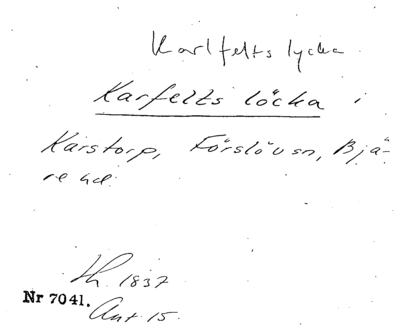 Karlfelts lycka
Karfelts löcka i
Karstorp, Förslövsn, Bjä-
re hd.
Lh. 1837
Nr 7041.
Ant. 15.